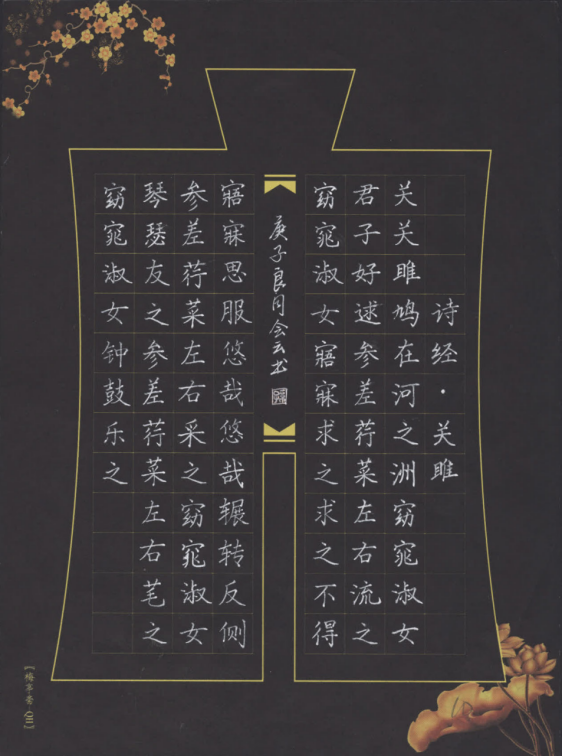 诗经·关雎
关关雎鸠在河之洲窈窕淑女
君子好逑参差荇菜左右流之
窈窕淑女寤寐求之求之不得
庚子良月会云书
寤寐思服悠哉悠哉辗转反侧
参差荇菜左右采之窈窕淑女
琴瑟友之参差荇菜左右芼之
窈窕淑女钟鼓乐之